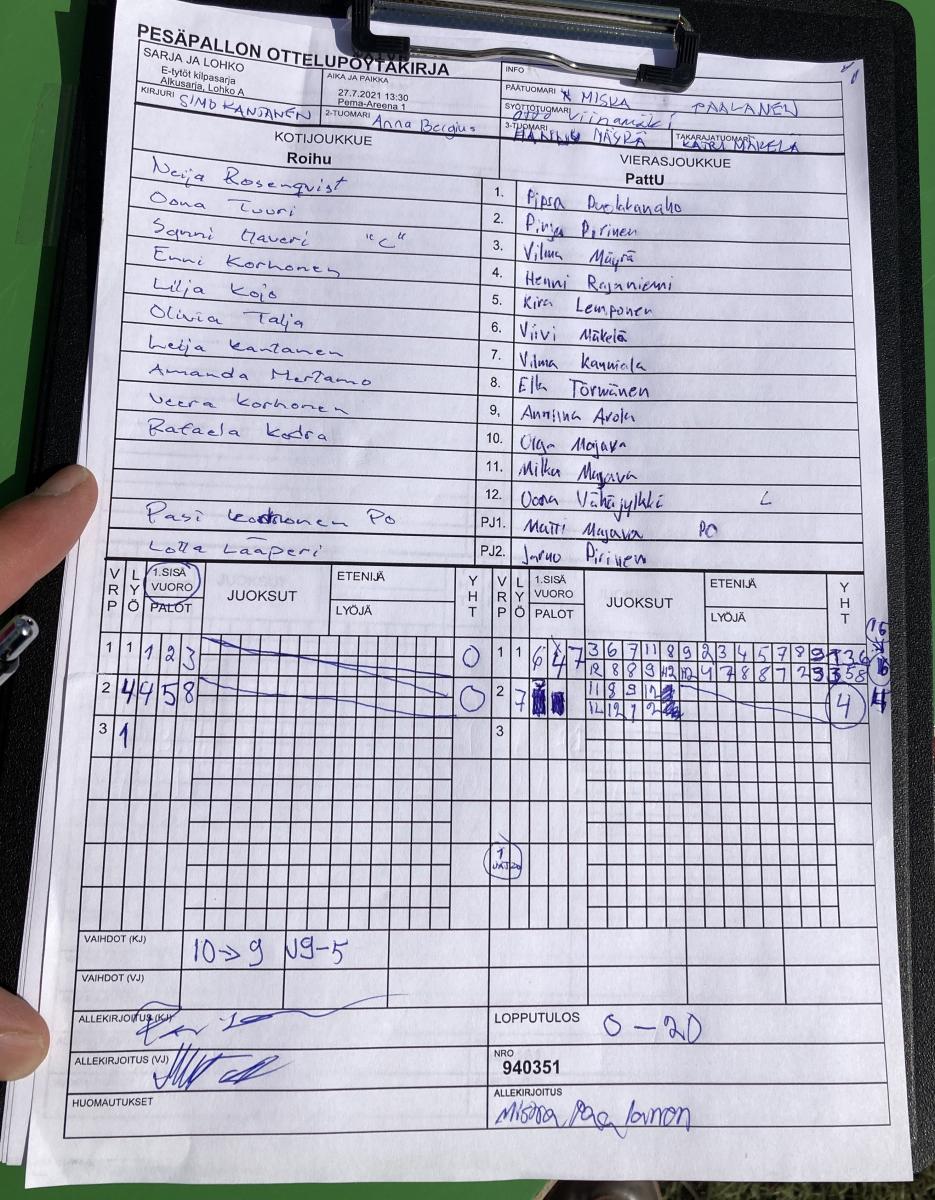 PESÄPALLON OTTELUPÖYTÄKIRJA
SARJA JA LOHKO
E-tytöt kilpasarja
Alkusarja, Lohko A
AIKA JA PAIKKA
27.7.2021 13:30
Pema-Areena 1
INFO
PÄÄTUOMARI MISKA PAALANEN
SYÖTTÖTUOMARI Viinamäki
KIRJURI SIMO KANTANEN
2-TUOMARI Anna Bergius
3-TUOMARI MÄYRÄ
TAKARAJATUOMARI KATRI MÄKELÄ
KOTIJOUKKUE
Roihu
VIERASJOUKKUE
PattU
Neija Rosenqvist 1. Pipsa
Oona Tuuri 2. Pinja Pirinen
Sanni Haveri "C" 3. Vilma Mäyrä
Enni Korhonen 4. Henni Rajaniemi
Lilja Kojo 5. Kira Lemponen
Olivia Talja 6. Viivi Mäkelä
Leija Kantanen 7. Vilma
Amanda Mertamo 8. Ella Törmänen
Veera Korhonen 9. Anniina Arola
Rafaela Kodra 10. Olga Majava
11. Milka Majava
12. Oona Vähäjylkkä L
Pasi PO PJ1. Matti Majava PO
Lotta Lääperi PJ2. Jarno Pirinen
VRP LYÖ 1.SISÄ VUORO PALOT JUOKSUT ETENIJÄ LYÖJÄ YHT VRP LYÖ 1.SISÄ VUORO PALOT JUOKSUT ETENIJÄ LYÖJÄ YHT
1 1 1 2 3 0 1 1 6 4 7 3 6 7 11 8 9 2 3 4 5 7 8 9
12 8 8 9
2 4 4 5 8 0 2 7 11 8 9 12 4
11 12 1 2
3 1 3
VAIHDOT (KJ) 10→9 V9-5
VAIHDOT (VJ)
ALLEKIRJOITUS (KJ)
LOPPUTULOS 0-20
ALLEKIRJOITUS (VJ)
NRO
940351
HUOMAUTUKSET
ALLEKIRJOITUS